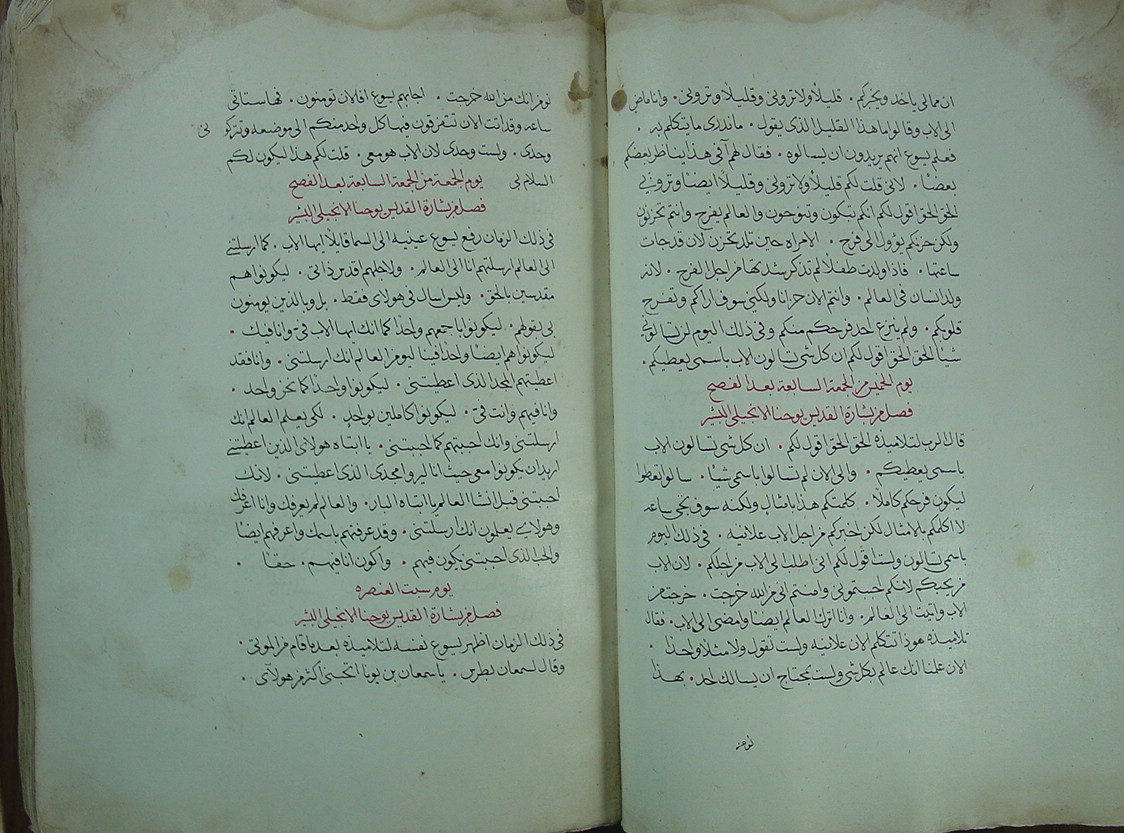 ان ممالي ياخد ويخبركم . قليلاً ولا تروني وقليلاً وتروني . وانا ماض
الى الاب وقالوا ما هذا القليل الذي يقول . ما ندري ما يتكلم به .
فعلم يسوع انهم يريدون ان يسالوه . فقال لهم آفي هذا يناظر بعضكم
بعضاً . لاني قلت لكم قليلاً ولا تروني وقليلاً ايضاً وتروني
الحق الحق اقول لكم انكم تبكون وتنوحون والعالم يفرح وانتم تحزنون
ولكن حزنكم يؤول الى فرح . الامراه حين تلد تحزن لان قد جات
ساعتها . فاذا ولدت طفلاً لم تدكر شدتها من اجل الفرح . لانه
ولد انسان في العالم . وانتم الان حزانا ولكني سوف اراكم وتفرح
قلوبكم . ولم ينزع احد فرحكم منكم وفي ذلك اليوم لن تسالوني
شياً الحق الحق اقول لكم ان كلشي تسالون الاب باسمي يعطيكم .
يوم الخميس من الجمعة السابعة بعد الفصح
فصل من بشارة القديس يوحنا الانجيلي البشير
قال الرب لتلاميذه الحق الحق اقول لكم . ان كلشي تسالون الاب
باسمي يعطيكم . والى الان لم تسالوا باسمي شياً . سالوا تعطوا
ليكون فرحكم كاملاً . كلمتكم هذا بامثال ولكنه سوف تجي ساعه
لا اكلمكم بالامثال لكن اخبركم من اجل الاب علانيه . في ذلك اليوم
باسمي تسالون ولست اقول لكم اني اطلب الى الاب من اجلكم . لان الاب
هو يحبكم لانكم احببتموني وامنتم اني من الله خرجت . خرجت من
الاب واتيت الى العالم . وانا اترك العالم ايضاً وامضي الى الاب . فقال
تلاميذه هوذا تتكلم الان علانيه ولست تقول ولا مثلاً واحداً .
الان علمنا انك عالم بكلشي ولست تحتاج ان يسالك احد . بهذا
نومن
نومن انك من الله خرجت . اجابهم يسوع افالان تومنون . فها ستاتي
ساعه وقد اتت الان تتفرقون فيها كل واحد منكم الى موضعه وتتركوني
وحدي . ولست وحدي لان الاب هو معي . قلت لكم هذا ليكون لكم
السلام بي
يوم الجمعة من الجمعة السابعة بعد الفصح
فصل من بشارة القديس يوحنا الانجيلي البشير
في ذلك الزمان رفع يسوع عينيه الى السما قايلاً ايها الاب . كما ارسلتني
الى العالم ارسلتهم انا الى العالم . ولاجلهم اقدس ذاتي . ليكونوا هم
مقدسين بالحق . وليس اسال في هولاي فقط . بل وبالذين يومنون
بي بقولهم . ليكونوا باجمعهم واحداً كما انك ايها الاب في وانا فيك .
ليكونوا هم ايضاً واحداً فينا ليومن العالم انك ارسلتني . وانا فقد
اعطيتهم المجد الذي اعطيتني . ليكونوا واحداً كما نحن واحد .
وانا فيهم وانت في . ليكونوا كاملين بواحدٍ . لكي يعلم العالم انك
ارسلتني وانك احببتهم كما احببتني . يا ابتاه هولاي الذين اعطيتني
اريد ان يكونوا معي حيث انا ليروا مجدي الذي اعطيتني . لانك
احببتني قبل انشا العالم يا ابتاه البار . والعالم لم يعرفك وانا اعرفك
وهولاي يعلمون انك ارسلتني . وقد عرفتهم باسمك واعرفهم ايضاً
والحب الذي احببتني يكون فيهم . واكون انا فيهم . حقاً .
يوم سبت العنصره
فصل من بشارة القديس يوحنا الانجيلي البشير
في ذلك الزمان اظهر يسوع نفسه لتلاميذه بعد ما قام من الموتى .
وقال لسمعان بطرس . يا سمعان بن يونا اتحبني اكثر من هولاي .